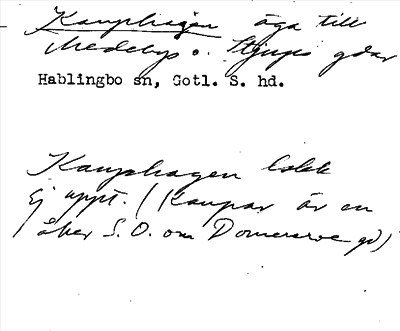 Kauphagen äga till
Medebys o. Stjups gdar
Hablingbo sn, Gotl. S. hd.
Kauphagen lokk
ej uppt. (Kaupar är en
åker S.O. om Domerarve gd)